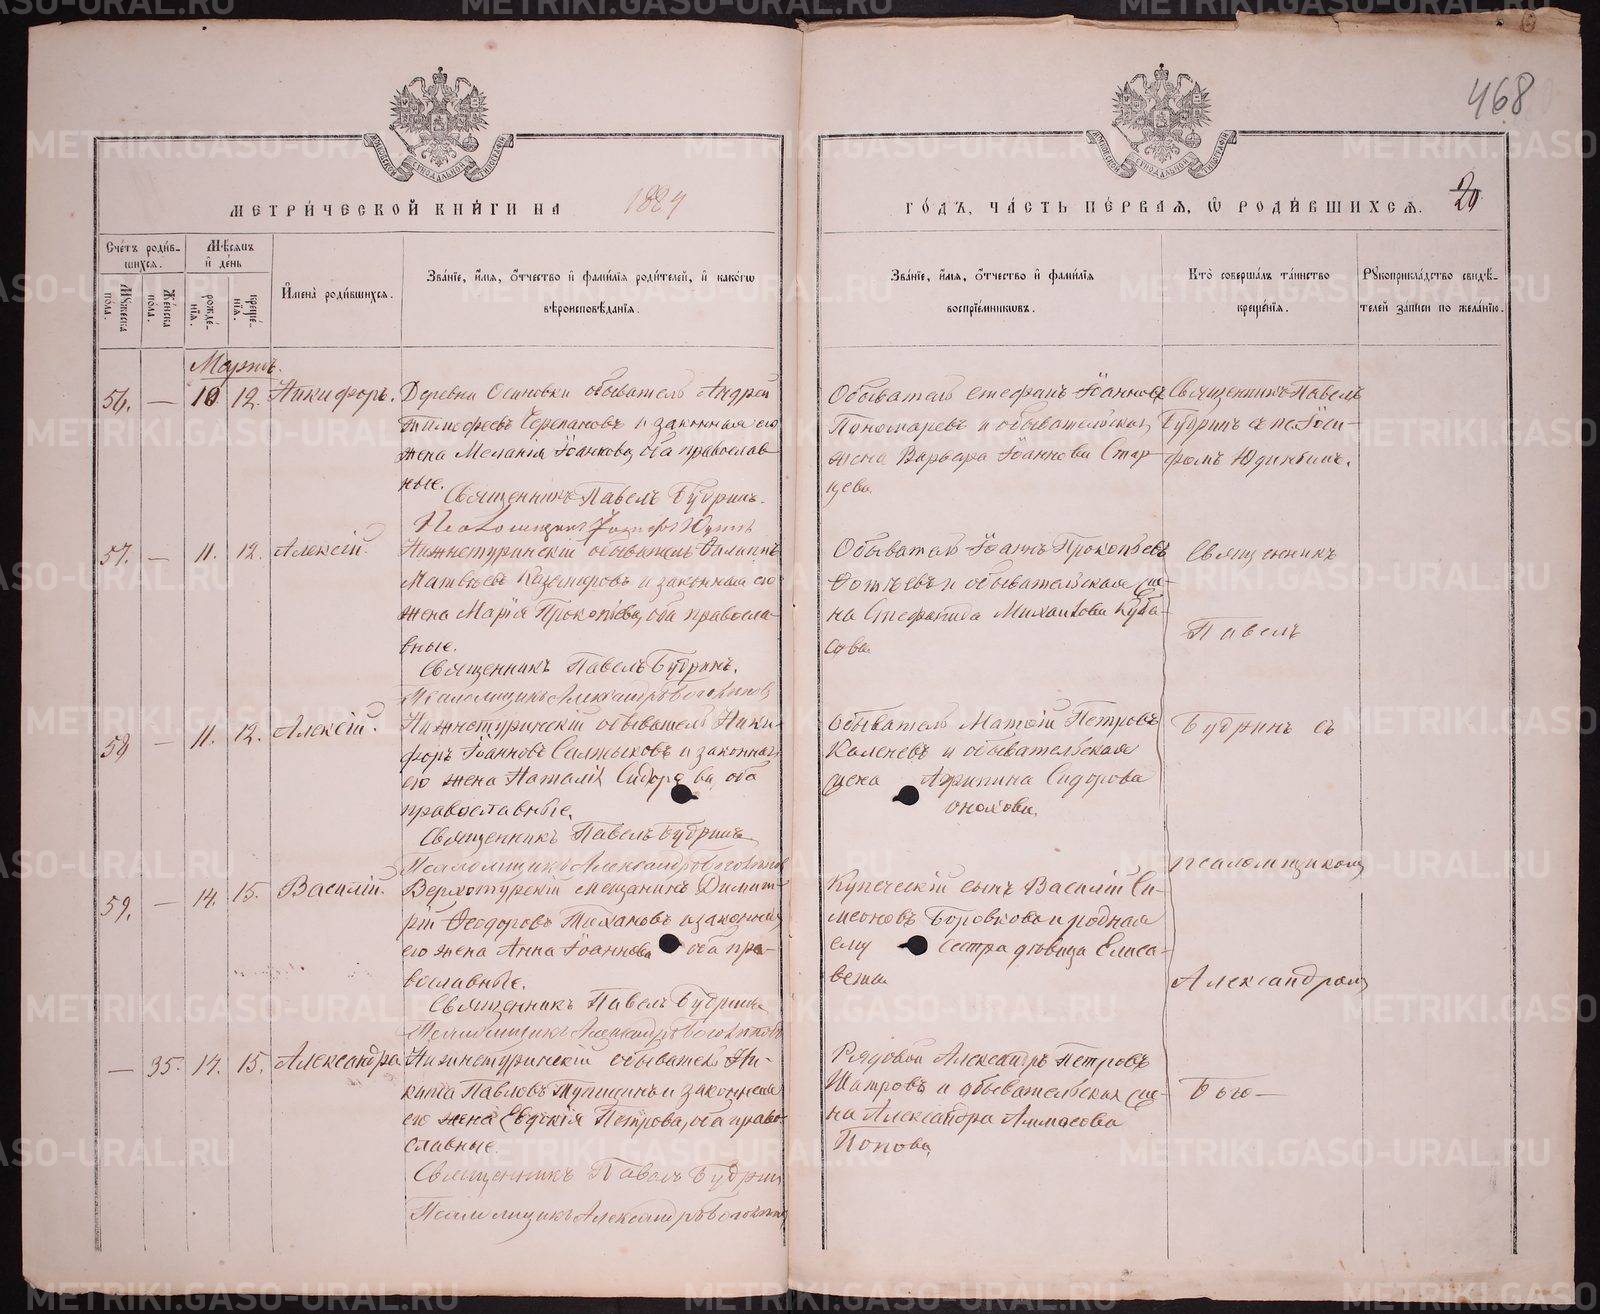 468
МЕТРИ́ЧЕСКОЙ КНИ́ГИ НА 1884
ГО́ДЪ, ЧА́СТЬ ПЕ́РВАЯ, Ѡ РОДИ́ВШИХСѦ.
20
Сче́тъ роди́в-
шихсѧ.
Мꙋжеска по́ла.
Же́нска по́ла.
Мѣсѧцъ
и де́нь
рожде́-
нїѧ.
креще́-
нїѧ.
И́мена роди́вшихсѧ.
Зва́нїе, и́мѧ, о́тчество и фами́лїѧ роди́телей, и како́гѡ
вѣроисповѣ́данїѧ.
Зва́нїе, и́мѧ, о́тчество и фами́лїѧ
воспрїе́мникѡвъ.
Кто̀ соверша́лъ та́инство
креще́нїѧ.
Рꙋкоприкла́дство свидѣ́-
телей за́писи по жела́нїю.
Мартъ.
56. — 10 12. Никифоръ.
Деревни Осиновки обыватель Андрей
Тимофеевъ Черепановъ и законная его
жена Меланія Іоаннова, оба православ
ные.
Священникъ Павелъ Будринъ.
Обыватель Стефанъ Іоанновъ
Пономаревъ и обывательская
жена Варвара Іоаннова Стар-
цева
Священникъ Павелъ
Будринъ съ пс. Іоси-
фомъ
57. — 11. 12. Алексій.
Нижнетуринскій обыватель Филиппъ
Матвѣевъ Казимировъ и законная его
жена Марія Прокопьева, оба правосла-
вные.
Священникъ Павелъ Будринъ.
Псаломщикъ Александръ
Обыватель Іоаннъ Прокопьевъ
и обывательская же-
на Стефанида Михайлова Куба-
сова
Священникъ
Павелъ
58 — 11. 12. Алексій.
Нижнетуринскій обыватель Ники-
форъ Іоанновъ Салтыковъ и законная
его жена Наталія Сидорова, оба
православные.
Священникъ Павелъ Будринъ
Псаломщикъ Александръ
Обыватель Матѳій Петровъ
и обывательская
жена Агрипина Сидорова
Будринъ съ
псаломщикомъ
59. — 14. 15. Василій.
Верхотурскій мещанинъ Димит-
рій Ѳеодоровъ и законная
его жена Анна Іоаннова оба пра-
вославные.
Священникъ Павелъ Будринъ
Псаломщикъ Александръ
Купеческій сынъ Василій Си-
меоновъ Боровковъ и родная
ему сестра дѣвица Елиса-
вета
Александромъ
— 35. 14. 15. Александра
Нижнетуринскій обыватель Ни-
кита Павловъ и законная
его жена Евдокія Петрова, оба право-
славные.
Священникъ Павелъ Будринъ
Псаломщикъ Александръ
Рядовой Александръ Петровъ
Шатровъ и обывательская же-
на Александра
Попова
Бого-
METRIKI.GASO-URAL.RU